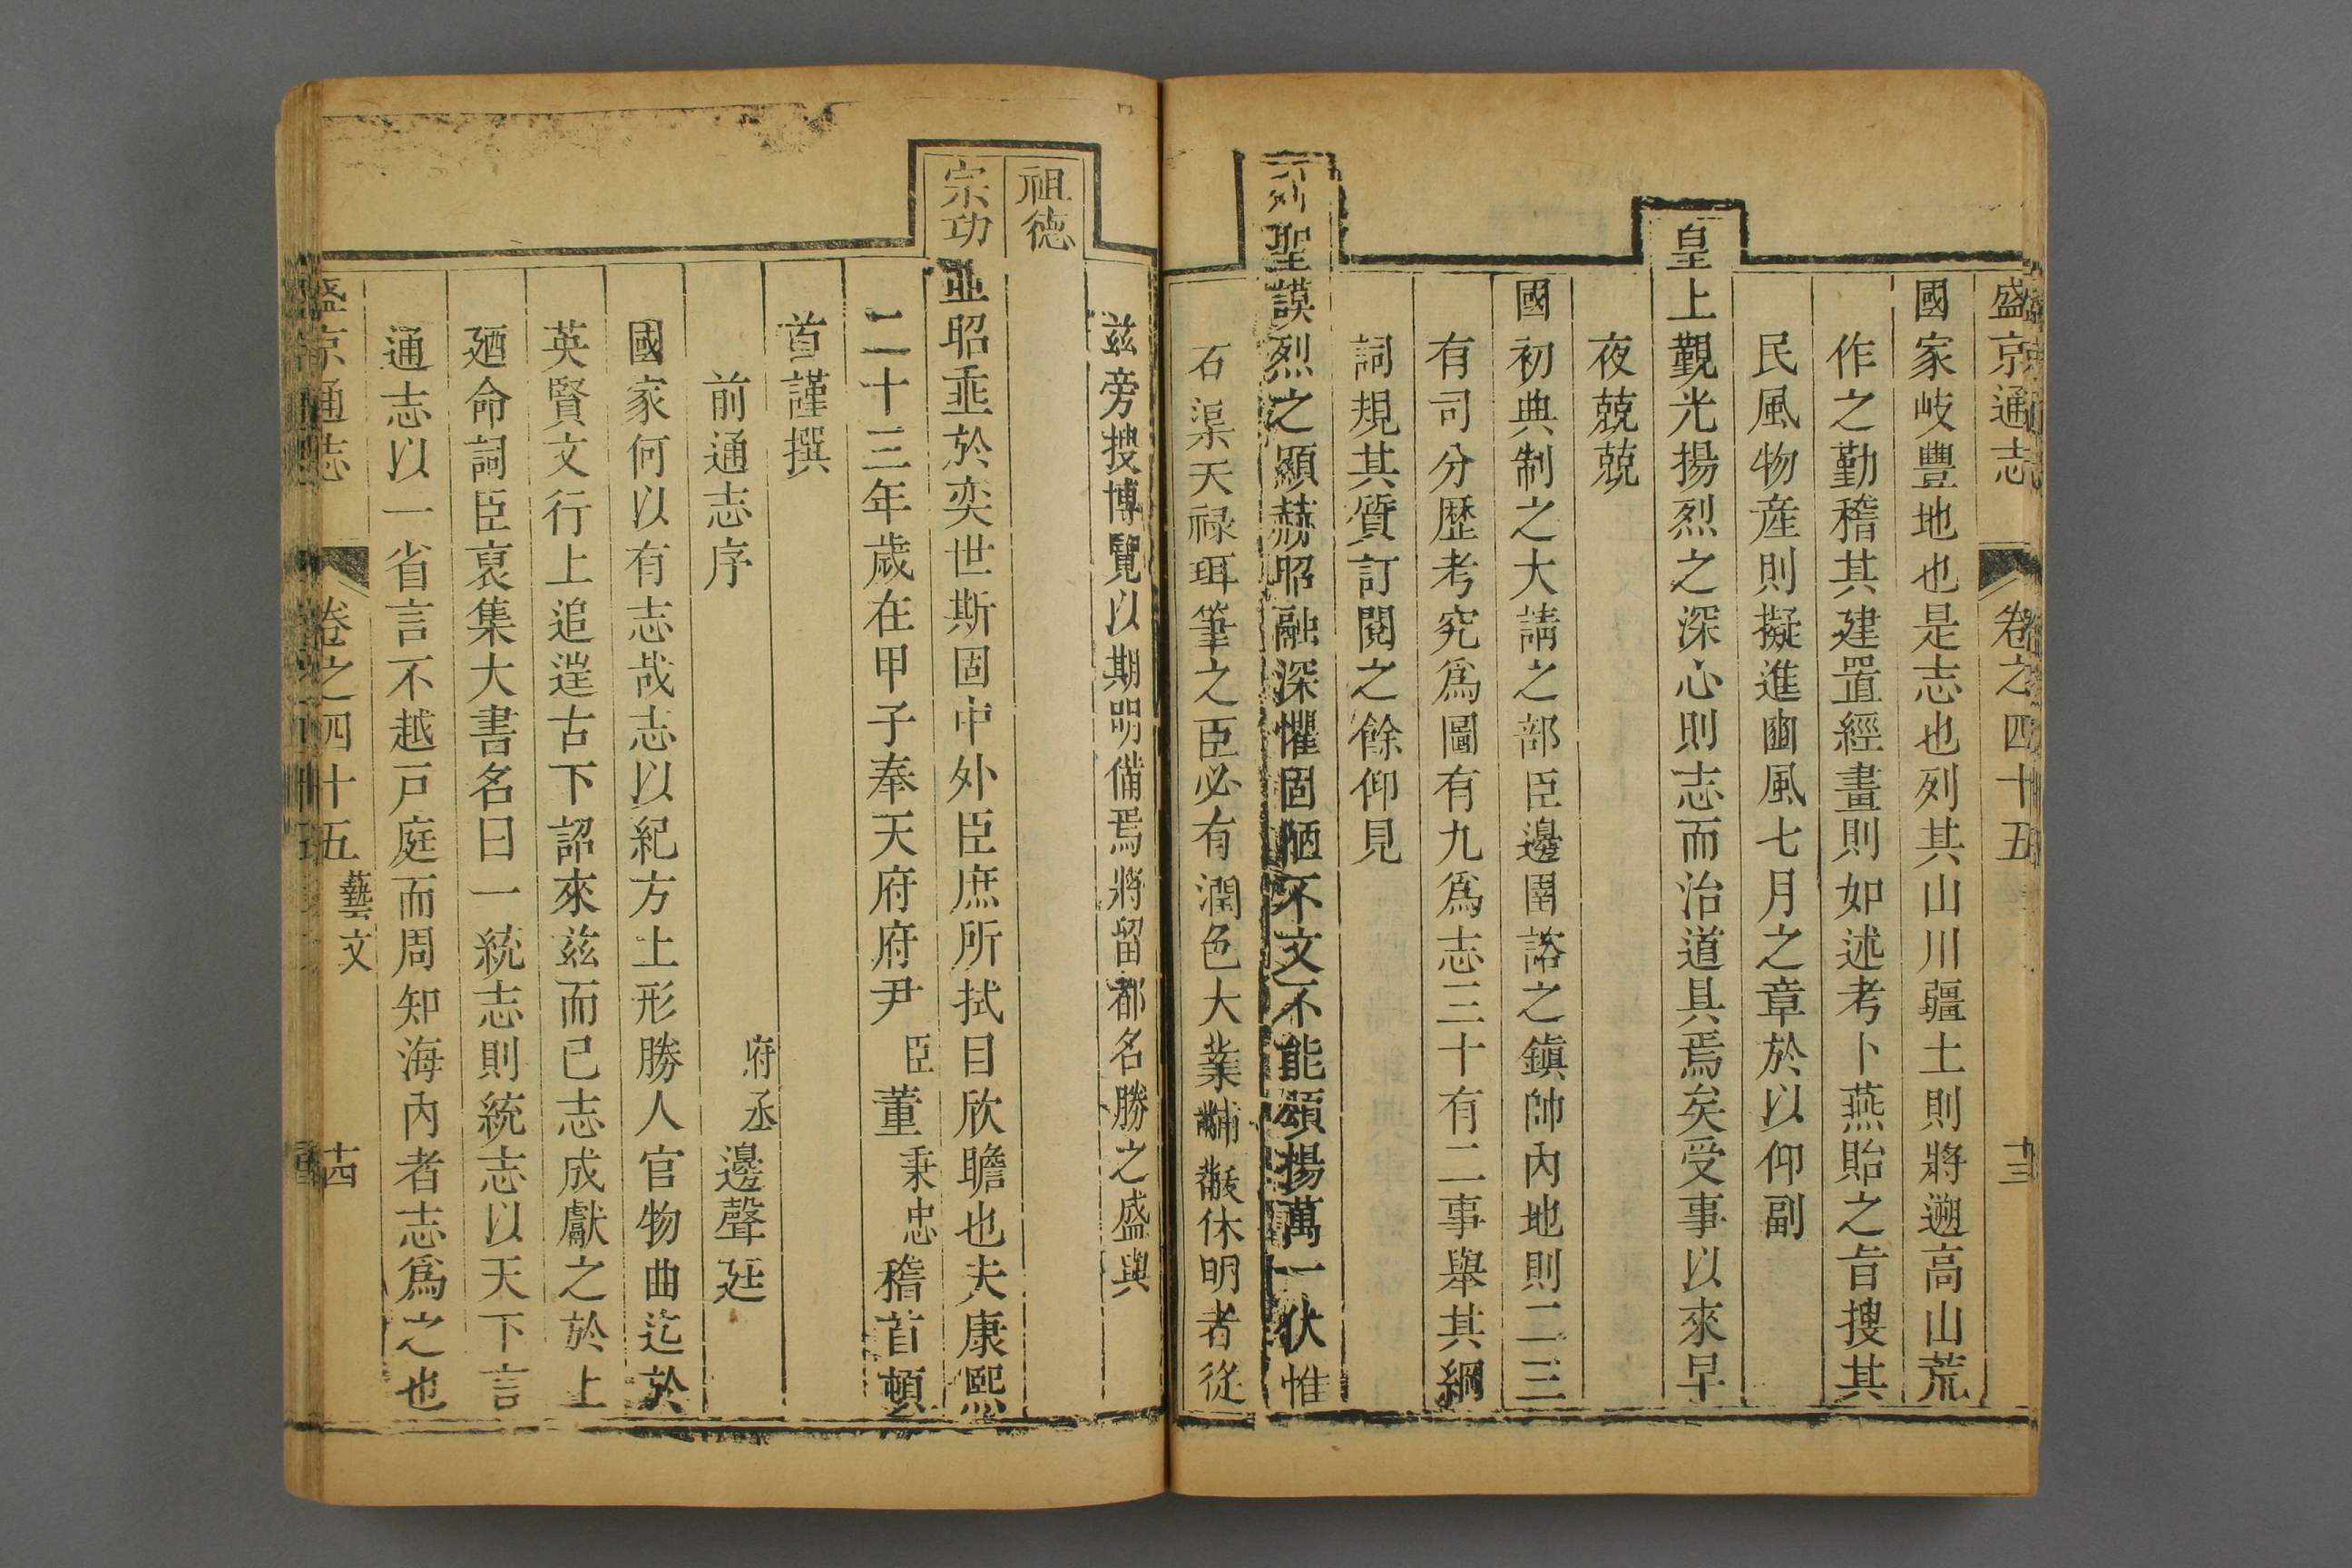 盛京通志 卷之四十五 十三
國家岐豐地也是志也列其山川疆土則將遡高山荒
作之勤稽其建置經畫則如述考卜燕貽之旨搜其
民風物産則擬進豳風七月之章於以仰副
皇上覲光揚烈之深心則志而治道具焉矣受事以來早
夜兢兢
國初典制之大請之部臣邊圉諮之鎮帥內地則二三
有司分歷考究爲圖有九爲志三十有二事舉其綱
詞規其質訂閱之餘仰見
列聖謨烈之顯赫昭融深懼固陋不文不能頌揚萬一伏惟
石渠天祿珥筆之臣必有潤色大業黼黻休明者從
兹旁搜博覽以期明備焉將留都名勝之盛與
祖德
宗功並昭垂於奕世斯固中外臣庶所拭目欣瞻也夫康熙
二十三年歲在甲子奉天府府尹臣董秉忠稽首頓
首謹撰
前通志序 府丞邊聲廷
國家何以有志哉志以紀方土形勝人官物曲迄於
英賢文行上追逴古下詔來兹而已志成獻之於上
廼命詞臣裒集大書名曰一統志則統志以天下言
通志以一省言不越戶庭而周知海內者志爲之也
盛京通志 卷之四十五 藝文 十四